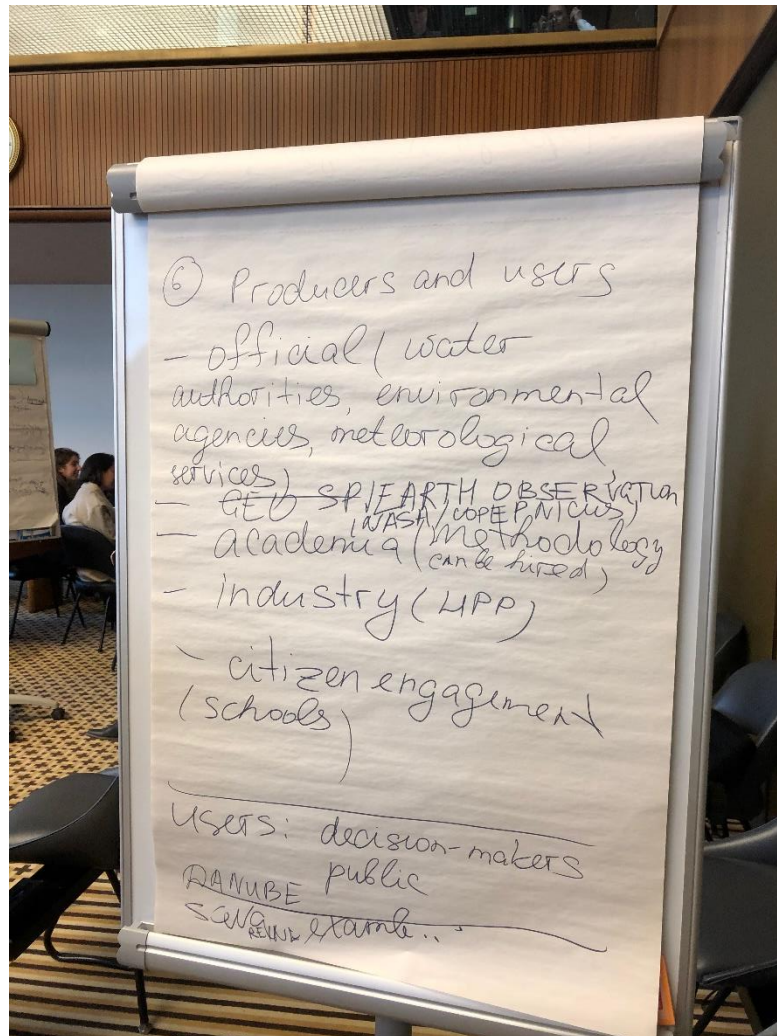 ⑥ Producers and users
- official (water
authorities, environmental
agencies, meteorological
services)
- GEO SP/EARTH OBSERVATION
(NASA/COPERNICUS)
- academia (methodology
can be hired)
- industry (HPP)
- citizen engagement
(schools)
users: decision-makers
public
DANUBE
Sava example..